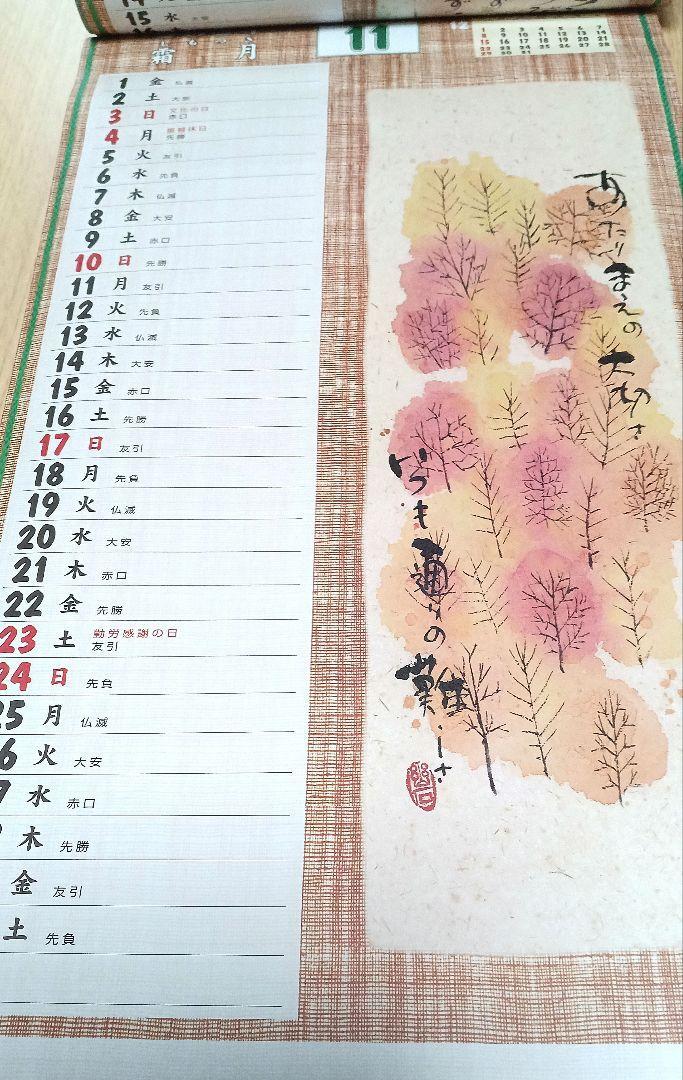 15 水 大安
霜月
11
12
1 2 3 4 5 6 7
8 9 10 11 12 13 14
15 16 17 18 19 20 21
22 23 24 25 26 27 28
29 30 31
1 金 仏滅
2 土 大安
3 日 文化の日 赤口
4 月 振替休日 先勝
5 火 友引
6 水 先負
7 木 仏滅
8 金 大安
9 土 赤口
10 日 先勝
11 月 友引
12 火 先負
13 水 仏滅
14 木 大安
15 金 赤口
16 土 先勝
17 日 友引
18 月 先負
19 火 仏滅
20 水 大安
21 木 赤口
22 金 先勝
23 土 勤労感謝の日 友引
24 日 先負
25 月 仏滅
6 火 大安
7 水 赤口
木 先勝
金 友引
土 先負
あたりまえの大切さ
いつも通りの難しさ